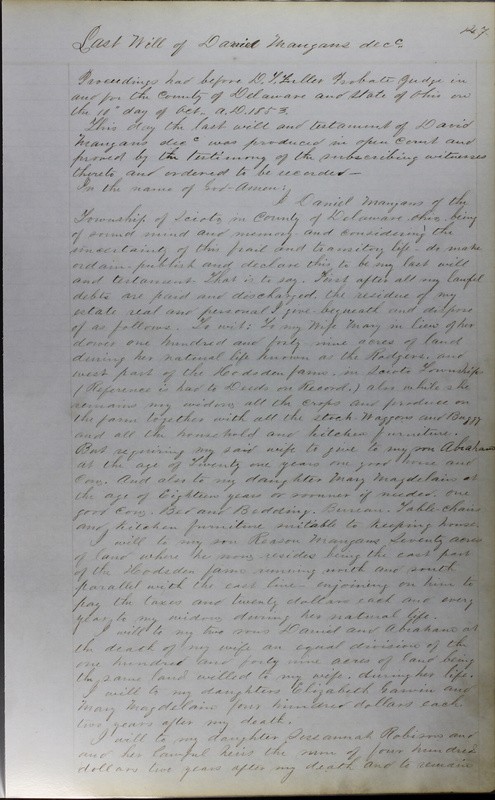 147
Last Will of Daniel Mangans decc.
Proceedings had before D. T. Fuller Probate Judge in
and for the County of Delaware and State of Ohio on
the 10" day of Oct. A.D. 1853.
This day the last will and testament of David
Mangans decc was produced in open Court and
proved by the testimony of the subscribing witnesses
thereto and ordered to be recorded —
In the name of God - Amen:
I Daniel Mangans of the
Township of Scioto in County of Delaware Ohio, being
of sound mind and memory and considering the
uncertainty of this frail and transitory life - do make
ordain - publish and declare this to be my last will
and testament. That is to say. First after all my lawful
debts are paid and discharged, the residue of my
estate real and personal I give - bequeath and dispose
of as follows. To wit: To my Wife Mary in lieu of her
dower one hundred and forty nine acres of land
during her natural life known as the Rodgers, and
west part of the Hodsden farm. in Scioto Township
(Reference is had to Deeds on Record.) also while she
remains my widow all the crops and produce on
the farm together with all the stock Waggons and Buggy
and all the household and kitchen furniture.
But requiring my said wife to give to my son Abraham
at the age of Twenty one years one good horse and
Cow. And also to my daughter Mary Magdelain at
the age of Eighteen years or sooner if needed. one
good Cow. Bed and Bedding. Bureau. Table chairs
and kitchen furniture suitable to keeping house.
I will to my son Reason Mangans Seventy acres
of land where he now resides being the east part
of the Hodsden farm running north and south
parallel with the east line - enjoining on him to
pay the taxes and twenty dollars each and every
year, to my widow during her natural life.
I will to my two sons Daniel and Abraham at
the death of my wife an equal division of the
one hundred and forty nine acres of land being
the same land willed to my wife, during her life.
I will to my daughters Elizabeth and
Mary Magdelain four hundred dollars each
two years after my death.
I will to my daughter Sussannah Robison and
and her lawful heirs the sum of four hundred
dollars two years after my death and to remain